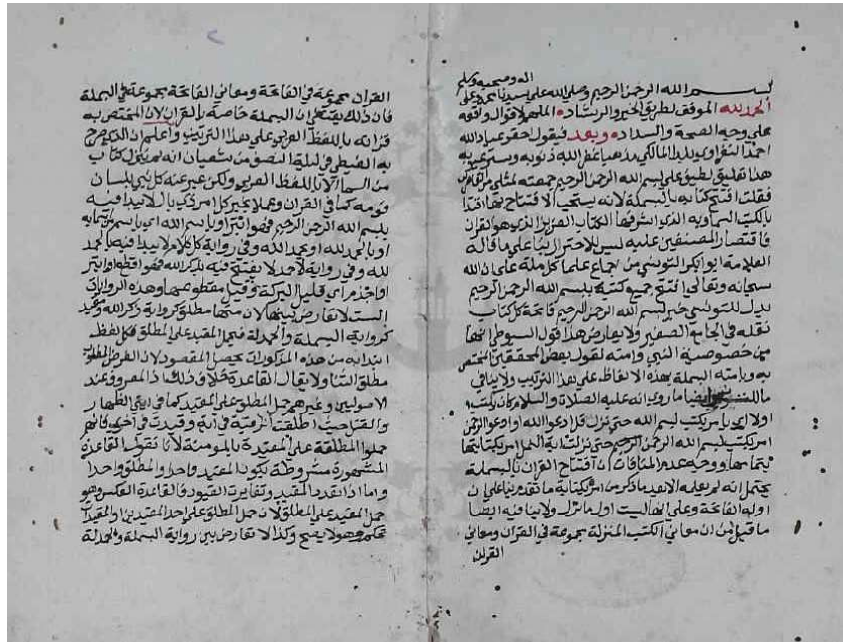 اله وصحبه وسلم
بسم الله الرحمن الرحيم وصلى الله على سيدنا محمد وعلى
الحمد لله الموفق لطريق الخير والرشاد الملهم لاقوال واقعه
على وجه الصحة والسداد وبعد فيقول حقير عباد الله
احمد النفراوي بلدا المالكي مذهبا غفر الله ذنوبه وستر عيوبه
هذا تعليق لطيف على بسم الله الرحمن الرحيم جمعته لمثلي من القاصرين
فقلت افتتح كتابه بالبسملة لانه يستحب الافتتاح بها اقتدا
بالكتب السماويه الذي اشرفها الكتاب العزيز الذي هو القران
فاقتصار المصنفين عليه ليس للاحتراز بنا على ما قاله
العلامة ابو بكر التونسي من اجماع علما كل ملة على ان الله
سبحانه وتعالى افتتح جميع كتبه ببسم الله الرحمن الرحيم
يدل للتونسي خبر بسم الله الرحمن الرحيم فاتحة كل كتاب
نقله في الجامع الصغير ولا يعارض هذا قول السيوطي انها
من خصوصية النبي وامته لقول بعض المحققين المختص
به وبامته البسملة بهذه الالفاظ على هذا الترتيب ولا ينافي
ما ايضا ما روي انه عليه الصلاة والسلام كان يكتب
اولا اي يامر بكتب بسم الله حتى نزل قل ادعوا الله او ادعوا الرحمن
امر بكتب بسم الله الرحمن الرحيم حتى نزلت اية النمل امر بكتابتها
بتمامها ووجه عدم المنافات ان افتتاح القران بالبسملة
يحتمل انه لم يعلمه الا بعد ما ذكر من امره بكتابة ما تقدم بنا على ان
اوله الفاتحة وعلى انها ليست اول ما نزل ولا ينافيه ايضا
ما قيل من ان معاني الكتب المنزلة مجموعة في القران ومعاني
القران
القران مجموعة في الفاتحة ومعاني الفاتحة مجموعة في البسملة
فان ذلك يقتضي ان البسملة خاصة بالقران لان المختص به
قرانه باللفظ العربي على هذا الترتيب واعلم ان الذي صرح
به الغيطي في ليلة النصف من شعبان انه لم ينزل كتاب
من السما الا باللفظ العربي ولكن عبر عنه كل نبي بلسان
قومه كما في القران وعملا بخبر كل امر ذي بال لا يبدا فيه
ببسم الله الرحمن الرحيم فهو ابتر او باسم الله اي باسم من اسمايه
او بالحمد لله او بحمد الله وفي رواية كل كلام لا يبدا فيه بالحمد
لله وفي رواية لاحمد لا يفتتح فيه بذكر الله فهو اقطع او ابتر
او اجذم اي قليل البركة وقيل مقطوعها وهذه الروايات
الست لا تعارض بينها لان منها مطلق كرواية ذكر الله ومقيد
كرواية البسملة والحمدلة فيحمل المقيد على المطلق فكل لفظ
ابتدا به من هذه المذكورات يحصل المقصود لان الغرض المطلوب
مطلق الثنا ولا يقال القاعدة خلاف ذلك اذ المعروف عند
الاصوليين وغيرهم حمل المطلق على المقيد كما في ايتي الظهار
والقتل حيث اطلقت الرقبة في اية وقيدت في اخرى فانهم
حملوا المطلقة على المقيدة بالمومنة لانا نقول القاعدة
المشهورة مشروطة بكون المقيد واحدا والمطلق واحدا
واما اذا تعدد المقيد وتغايرت القيود فالقاعدة العكس وهو
حمل المقيد على المطلق لان حمل المطلق على احد المقيدين او المقيدات
تحكم وهو لا يصح وكذا لا تعارض بين رواية البسملة والحمدلة